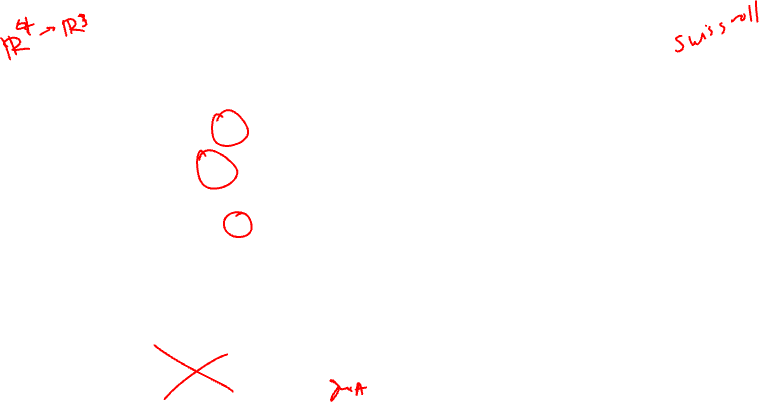 ℝ⁴→ℝ³
swiss roll